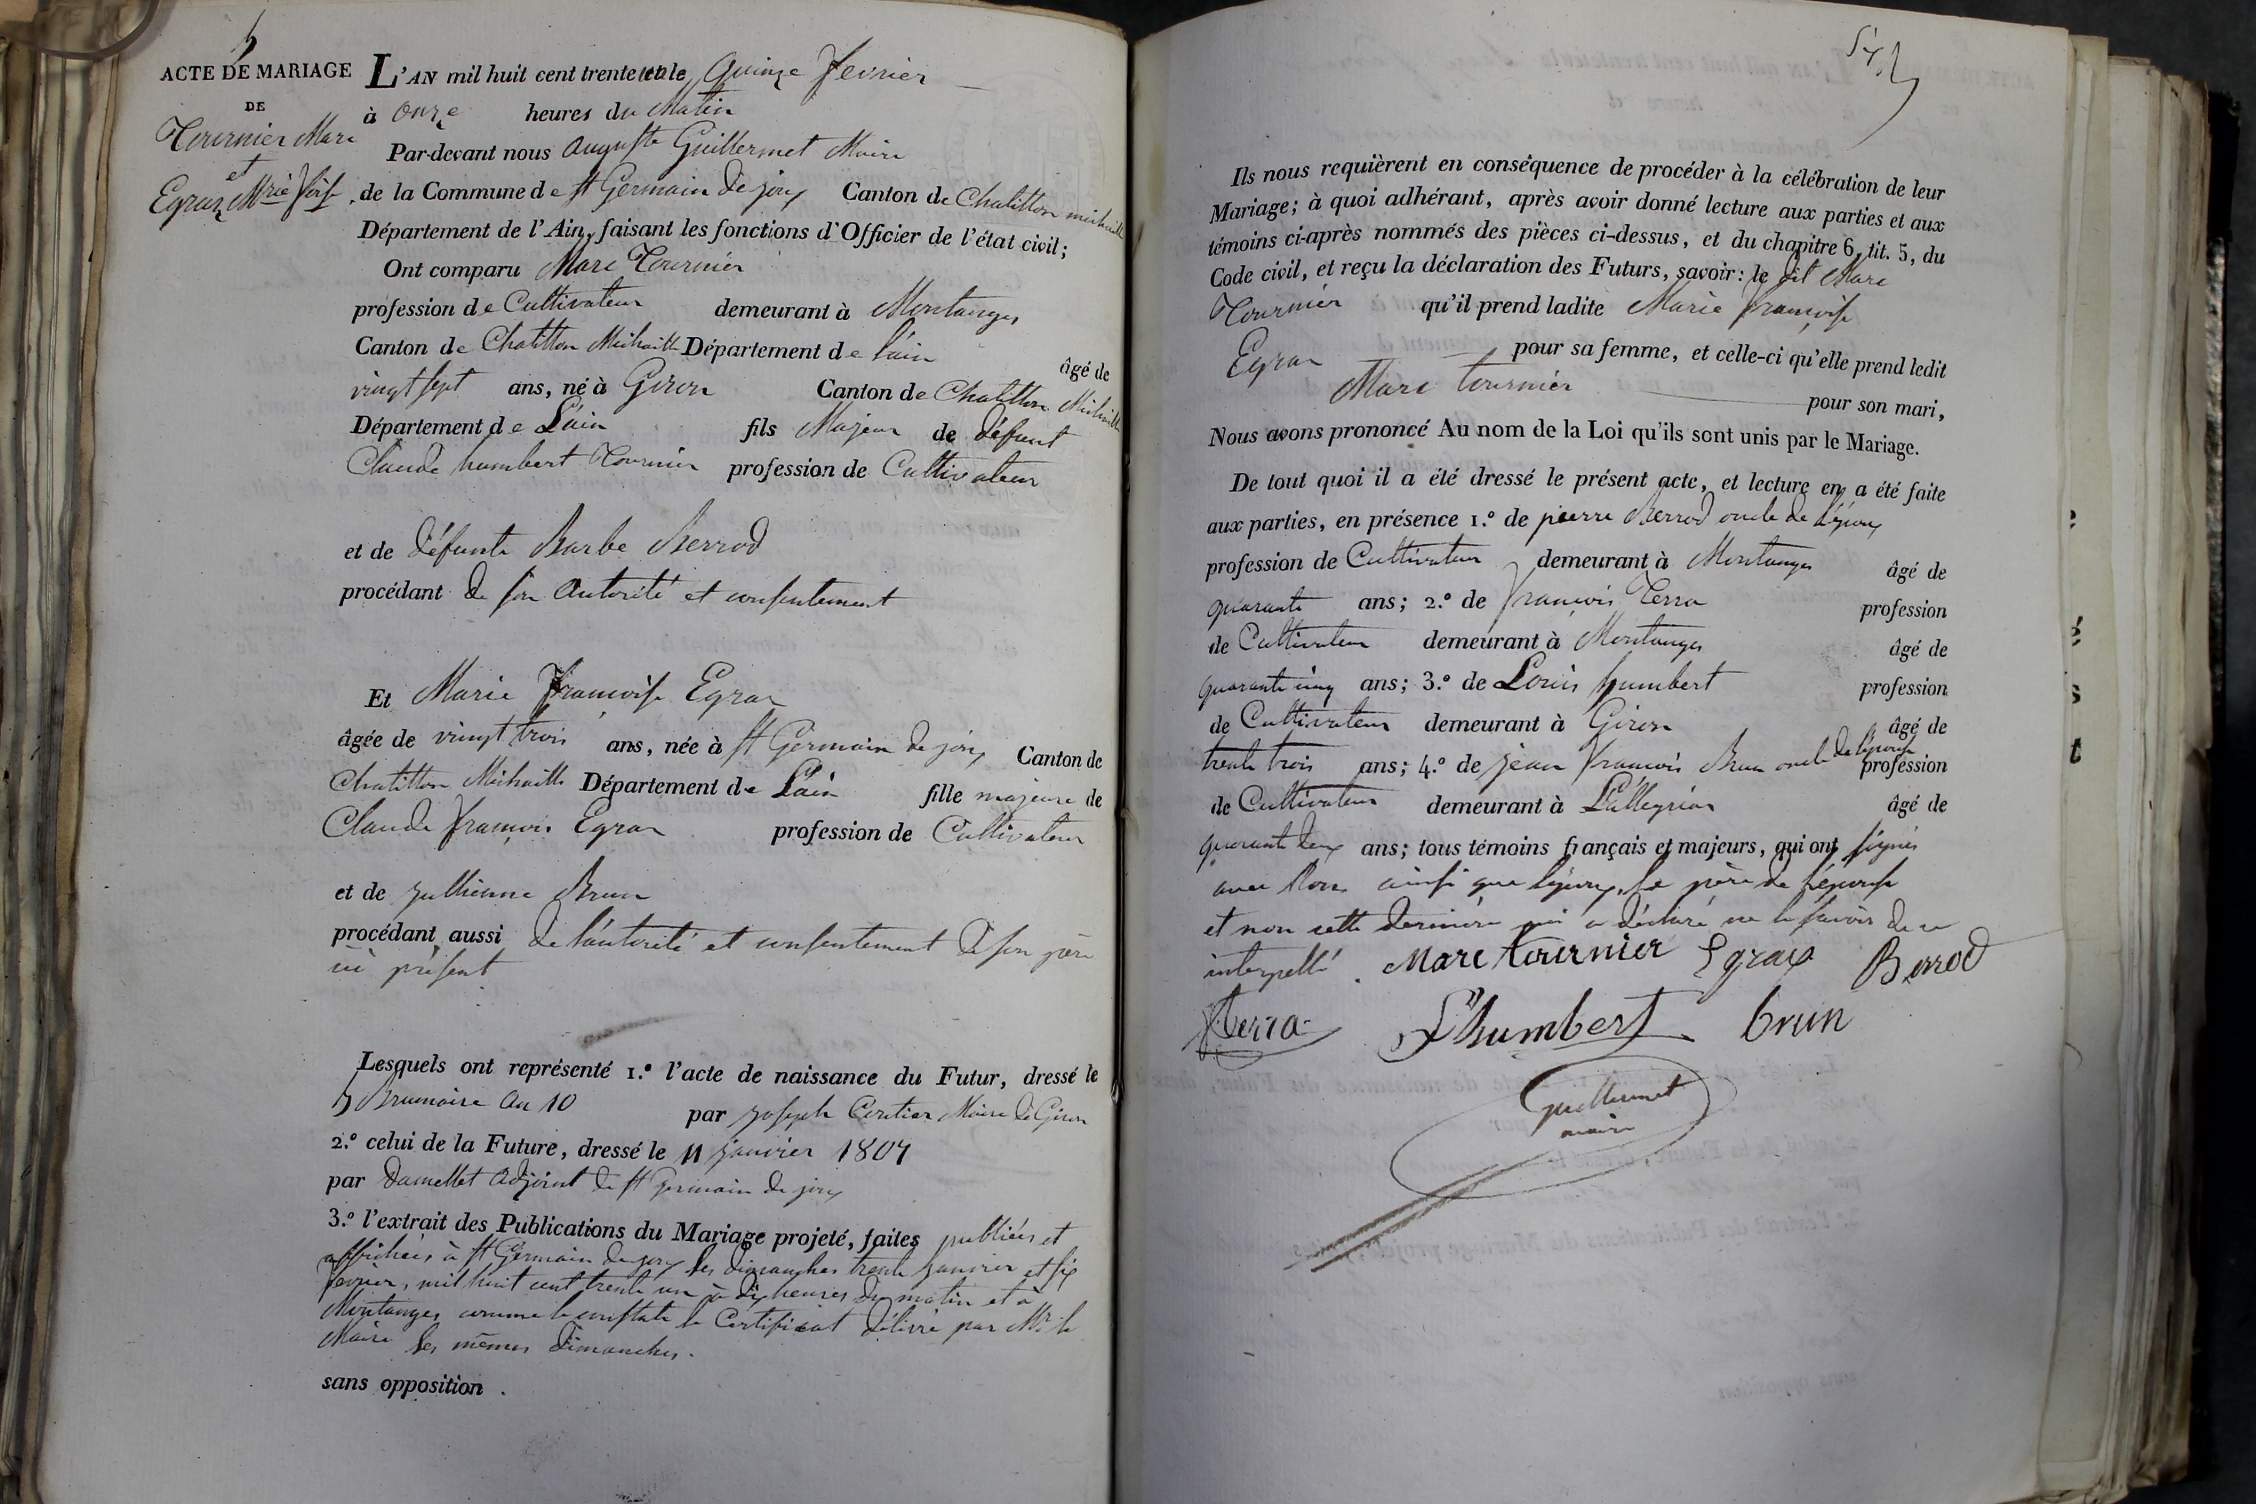 5
ACTE DE MARIAGE
DE
Tournier Marc
et
Egraz Mrie Foise
L'AN mil huit cent trente un le Quinze fevrier
à onze heures du Matin
Par-devant nous Auguste Guillermet Maire
de la Commune de St Germain de joux Canton de Chatillon michaille
Département de l'Ain, faisant les fonctions d'Officier de l'état civil;
Ont comparu Marc Tournier
profession de Cultivateur demeurant à Montanges
Canton de Chatillon Michaille Département de l'ain âgé de
vingt sept ans, né à Giron Canton de Chatillon Michaille
Département de L'ain fils Majeur de défunt
Claude humbert Tournier profession de Cultivateur
et de défunte Barbe Berrod
procédant de son autorité et consentement
Et Marie françoise Egraz
âgée de vingt trois ans, née à St Germain de joux Canton de
Chatillon Michaille Département de L'ain fille majeure de
Claude françois Egraz profession de Cultivateur
et de jullienne Brun
procédant aussi de l'autorité et consentement de son père
ici présent
Lesquels ont représenté 1.º l'acte de naissance du Futur, dressé le
5 Brumaire an 10 par joseph Maire de Giron
2.º celui de la Future, dressé le 11 janvier 1807
par adjoint de St germain de joux
3.º l'extrait des Publications du Mariage projeté, faites publiées et
affichées à St Germain de joux les dimanches trente janvier et six
fevrier, mil huit cent trente un à dix heures du matin et à
Montanges comme le constate le Certificat délivré par Mr le
Maire les mêmes dimanches.
sans opposition.
Six
Ils nous requièrent en conséquence de procéder à la célébration de leur
Mariage; à quoi adhérant, après avoir donné lecture aux parties et aux
témoins ci-après nommés des pièces ci-dessus, et du chapitre 6, tit. 5, du
Code civil, et reçu la déclaration des Futurs, savoir: le dit Marc
Tournier qu'il prend ladite Marie françoise
Egraz pour sa femme, et celle-ci qu'elle prend ledit
Marc tournier pour son mari,
Nous avons prononcé Au nom de la Loi qu'ils sont unis par le Mariage.
De tout quoi il a été dressé le présent acte, et lecture en a été faite
aux parties, en présence 1.º de pierre Berrod oncle de l'époux
profession de Cultivateur demeurant à Montanges âgé de
quarante ans; 2.º de françois Terra profession
de Cultivateur demeurant à Montanges âgé de
quarante cinq ans; 3.º de Louis humbert profession
de Cultivateur demeurant à Giron âgé de
trente trois ans; 4.º de jean françois Brun oncle de l'épouse profession
de Cultivateur demeurant à Lalleyriat âgé de
quarante deux ans; tous témoins français et majeurs, qui ont signés
avec Nous ainsi que l'époux, le père de l'épouse
et non cette dernière qui a déclaré ne le savoir de ce
interpellé. Marc tournier Egraz Berrod
f. terra L humbert brun
guillermet
maire